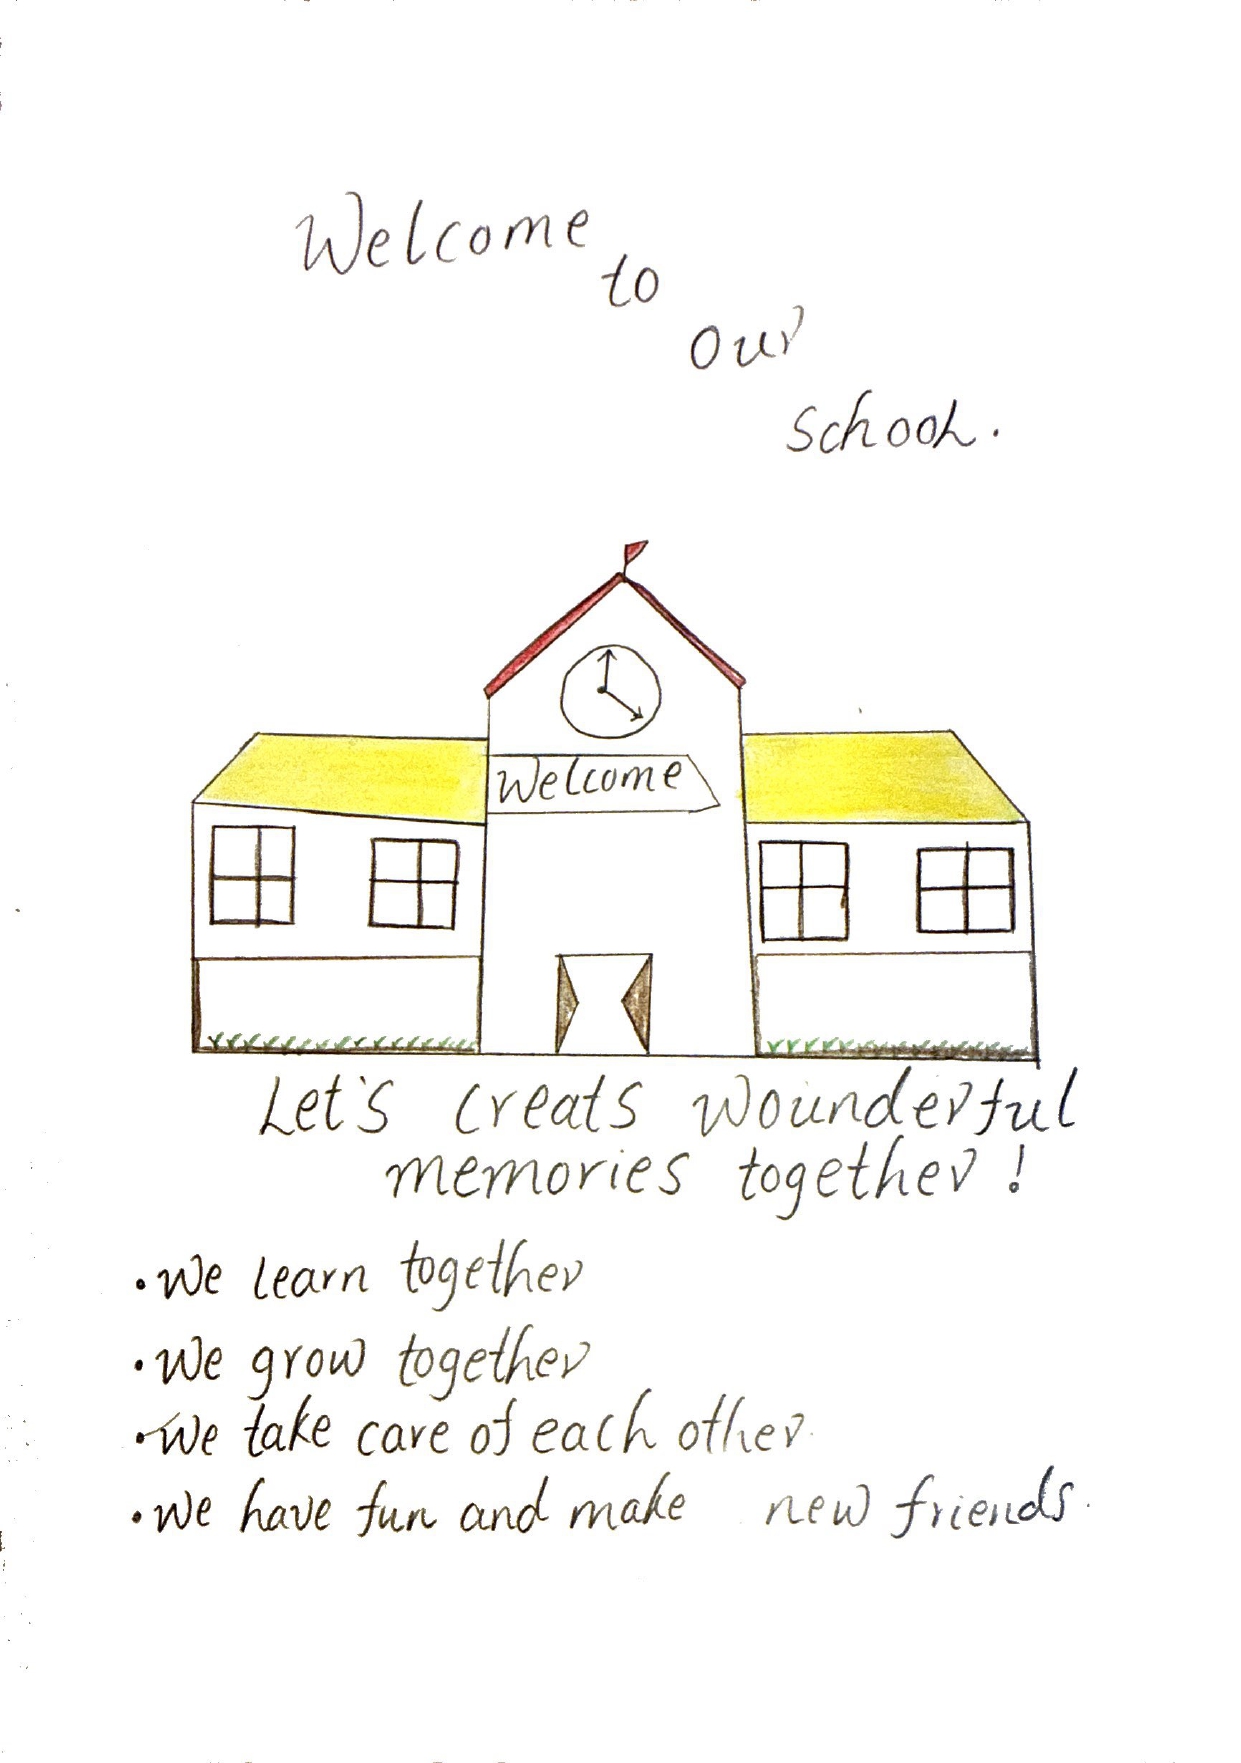 Welcome
to
our
school.
Welcome
Let's creats wounderful
memories together!
• We learn together
• We grow together
• We take care of each other
• We have fun and make new friends.